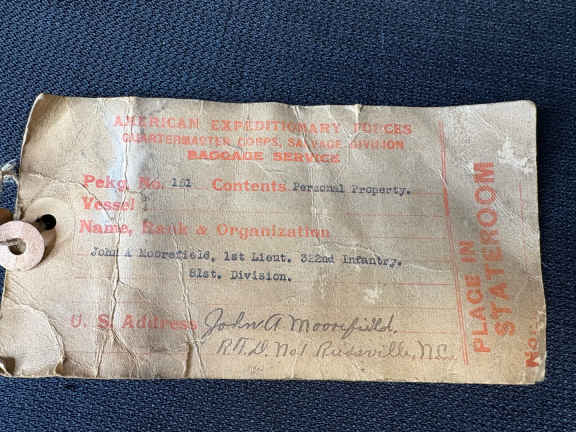 AMERICAN EXPEDITIONARY FORCES
QUARTERMASTER CORPS, SALVAGE DIVISION
BAGGAGE SERVICE
Pckg. No. 151 Contents Personal Property.
Vessel
Name, Rank & Organization
John A Moorefield, 1st Lieut. 322nd Infantry.
81st. Division.
U. S. Address John A Moorefield.
R.F.D. No1 Reidsville, N.C.
PLACE IN
STATEROOM
No.